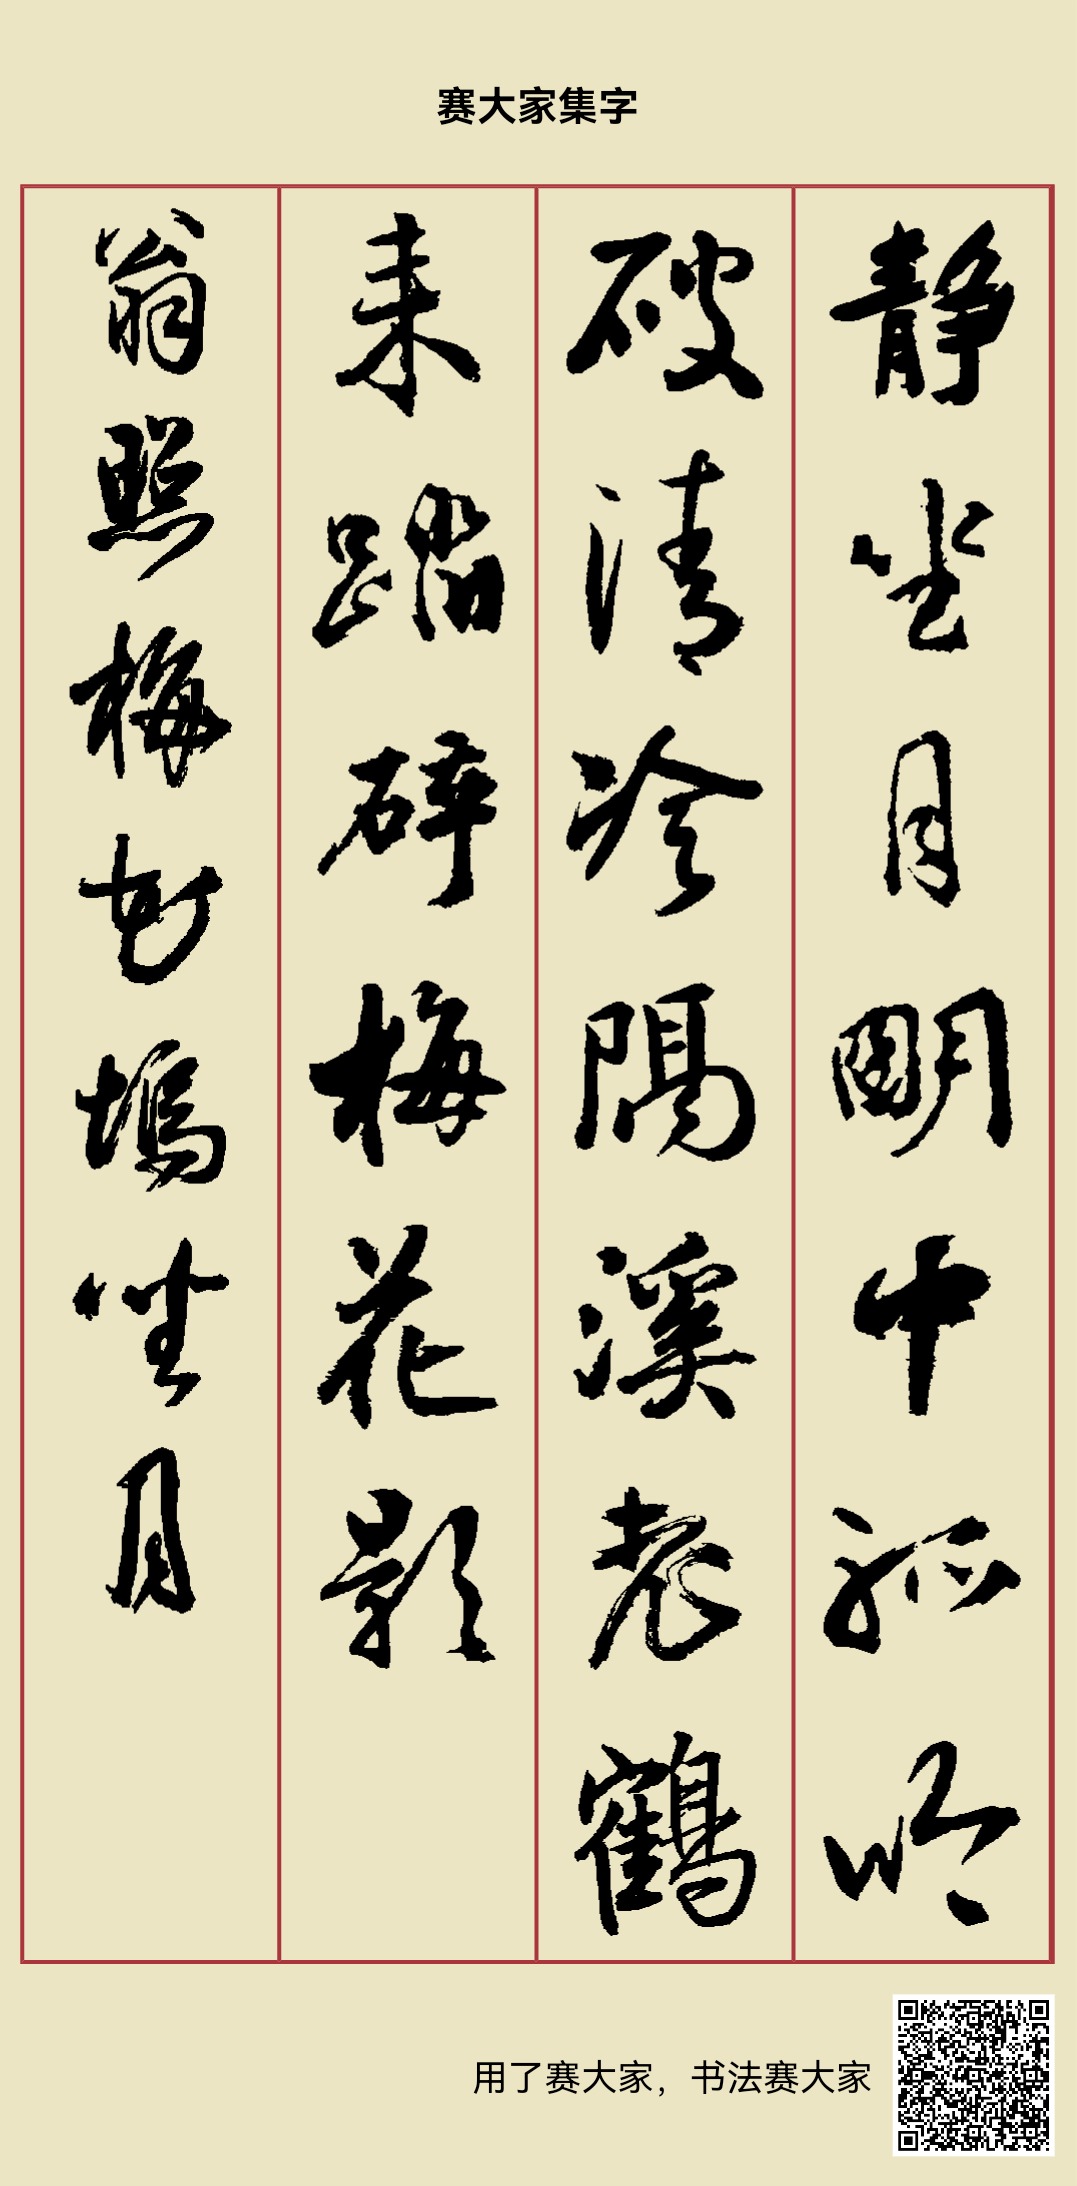 赛大家集字
静坐月明中孤吟
破清冷隔溪老鶴
来踏碎梅花影
翁照梅花塢坐月
用了赛大家，书法赛大家